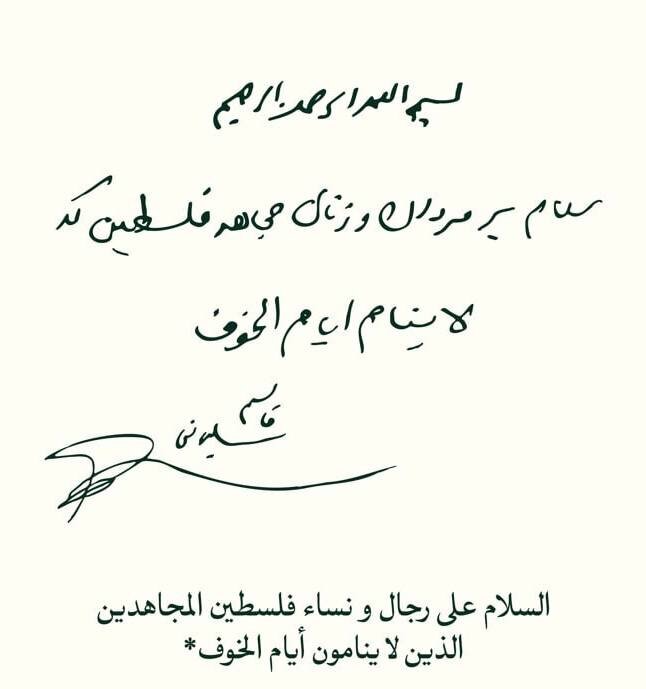 بسم الله الرحمن الرحیم
سلام بر مردان و زنان مجاهد فلسطین که
لا ینام ایام الخوف
قاسم
سلیمانی
السلام على رجال و نساء فلسطين المجاهدين
الذين لا ينامون أيام الخوف*